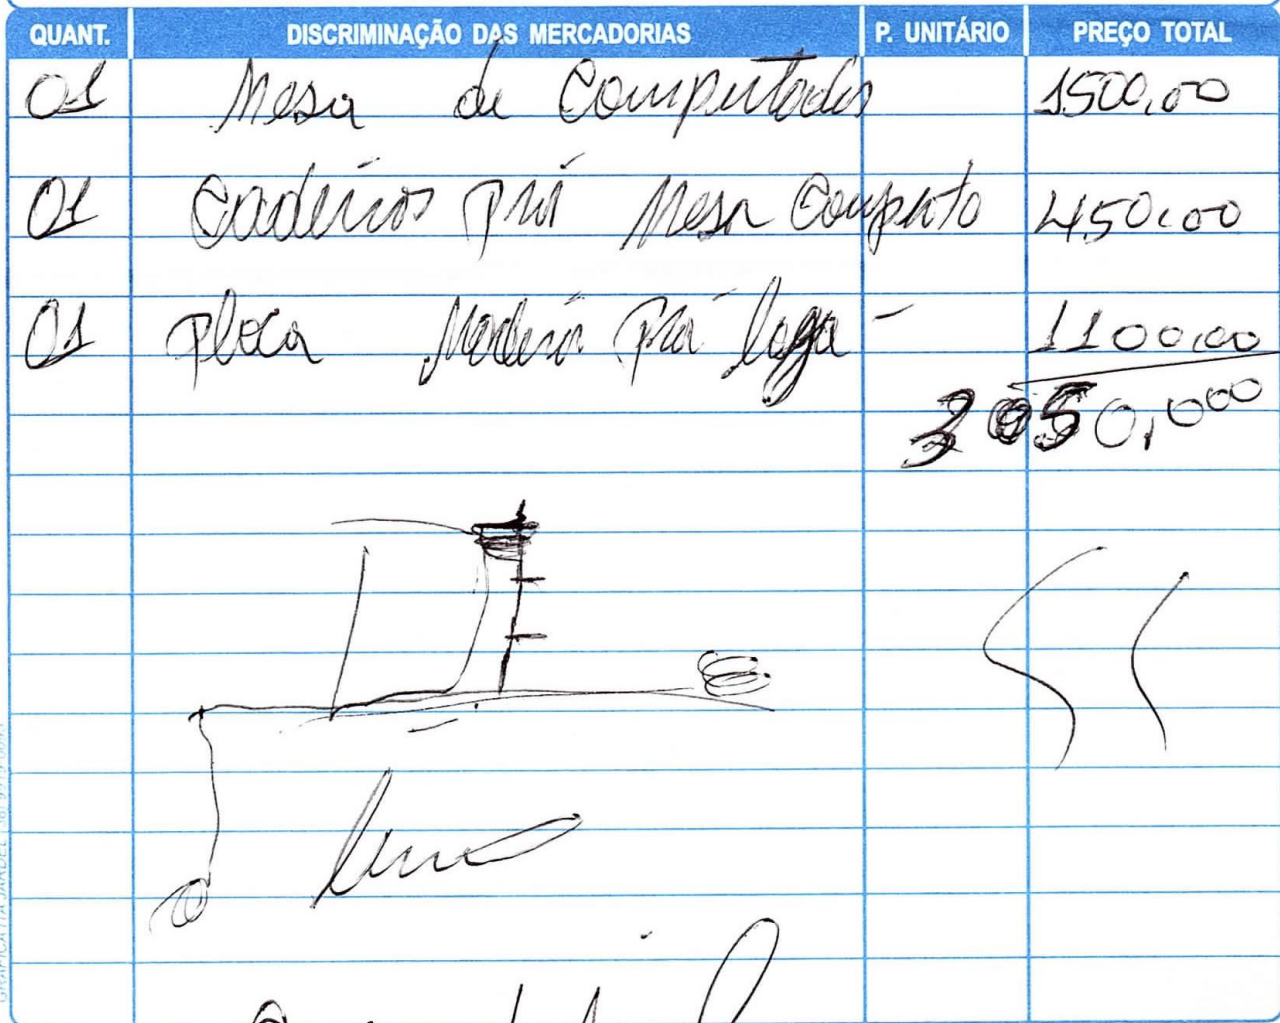 QUANT. DISCRIMINAÇÃO DAS MERCADORIAS P. UNITÁRIO PREÇO TOTAL
01 Mesa de Computador 1500,00
01 Cadeiras prá Mesa Computo 450,00
01 placa Madeira prá loga - 1100,00
3050,000